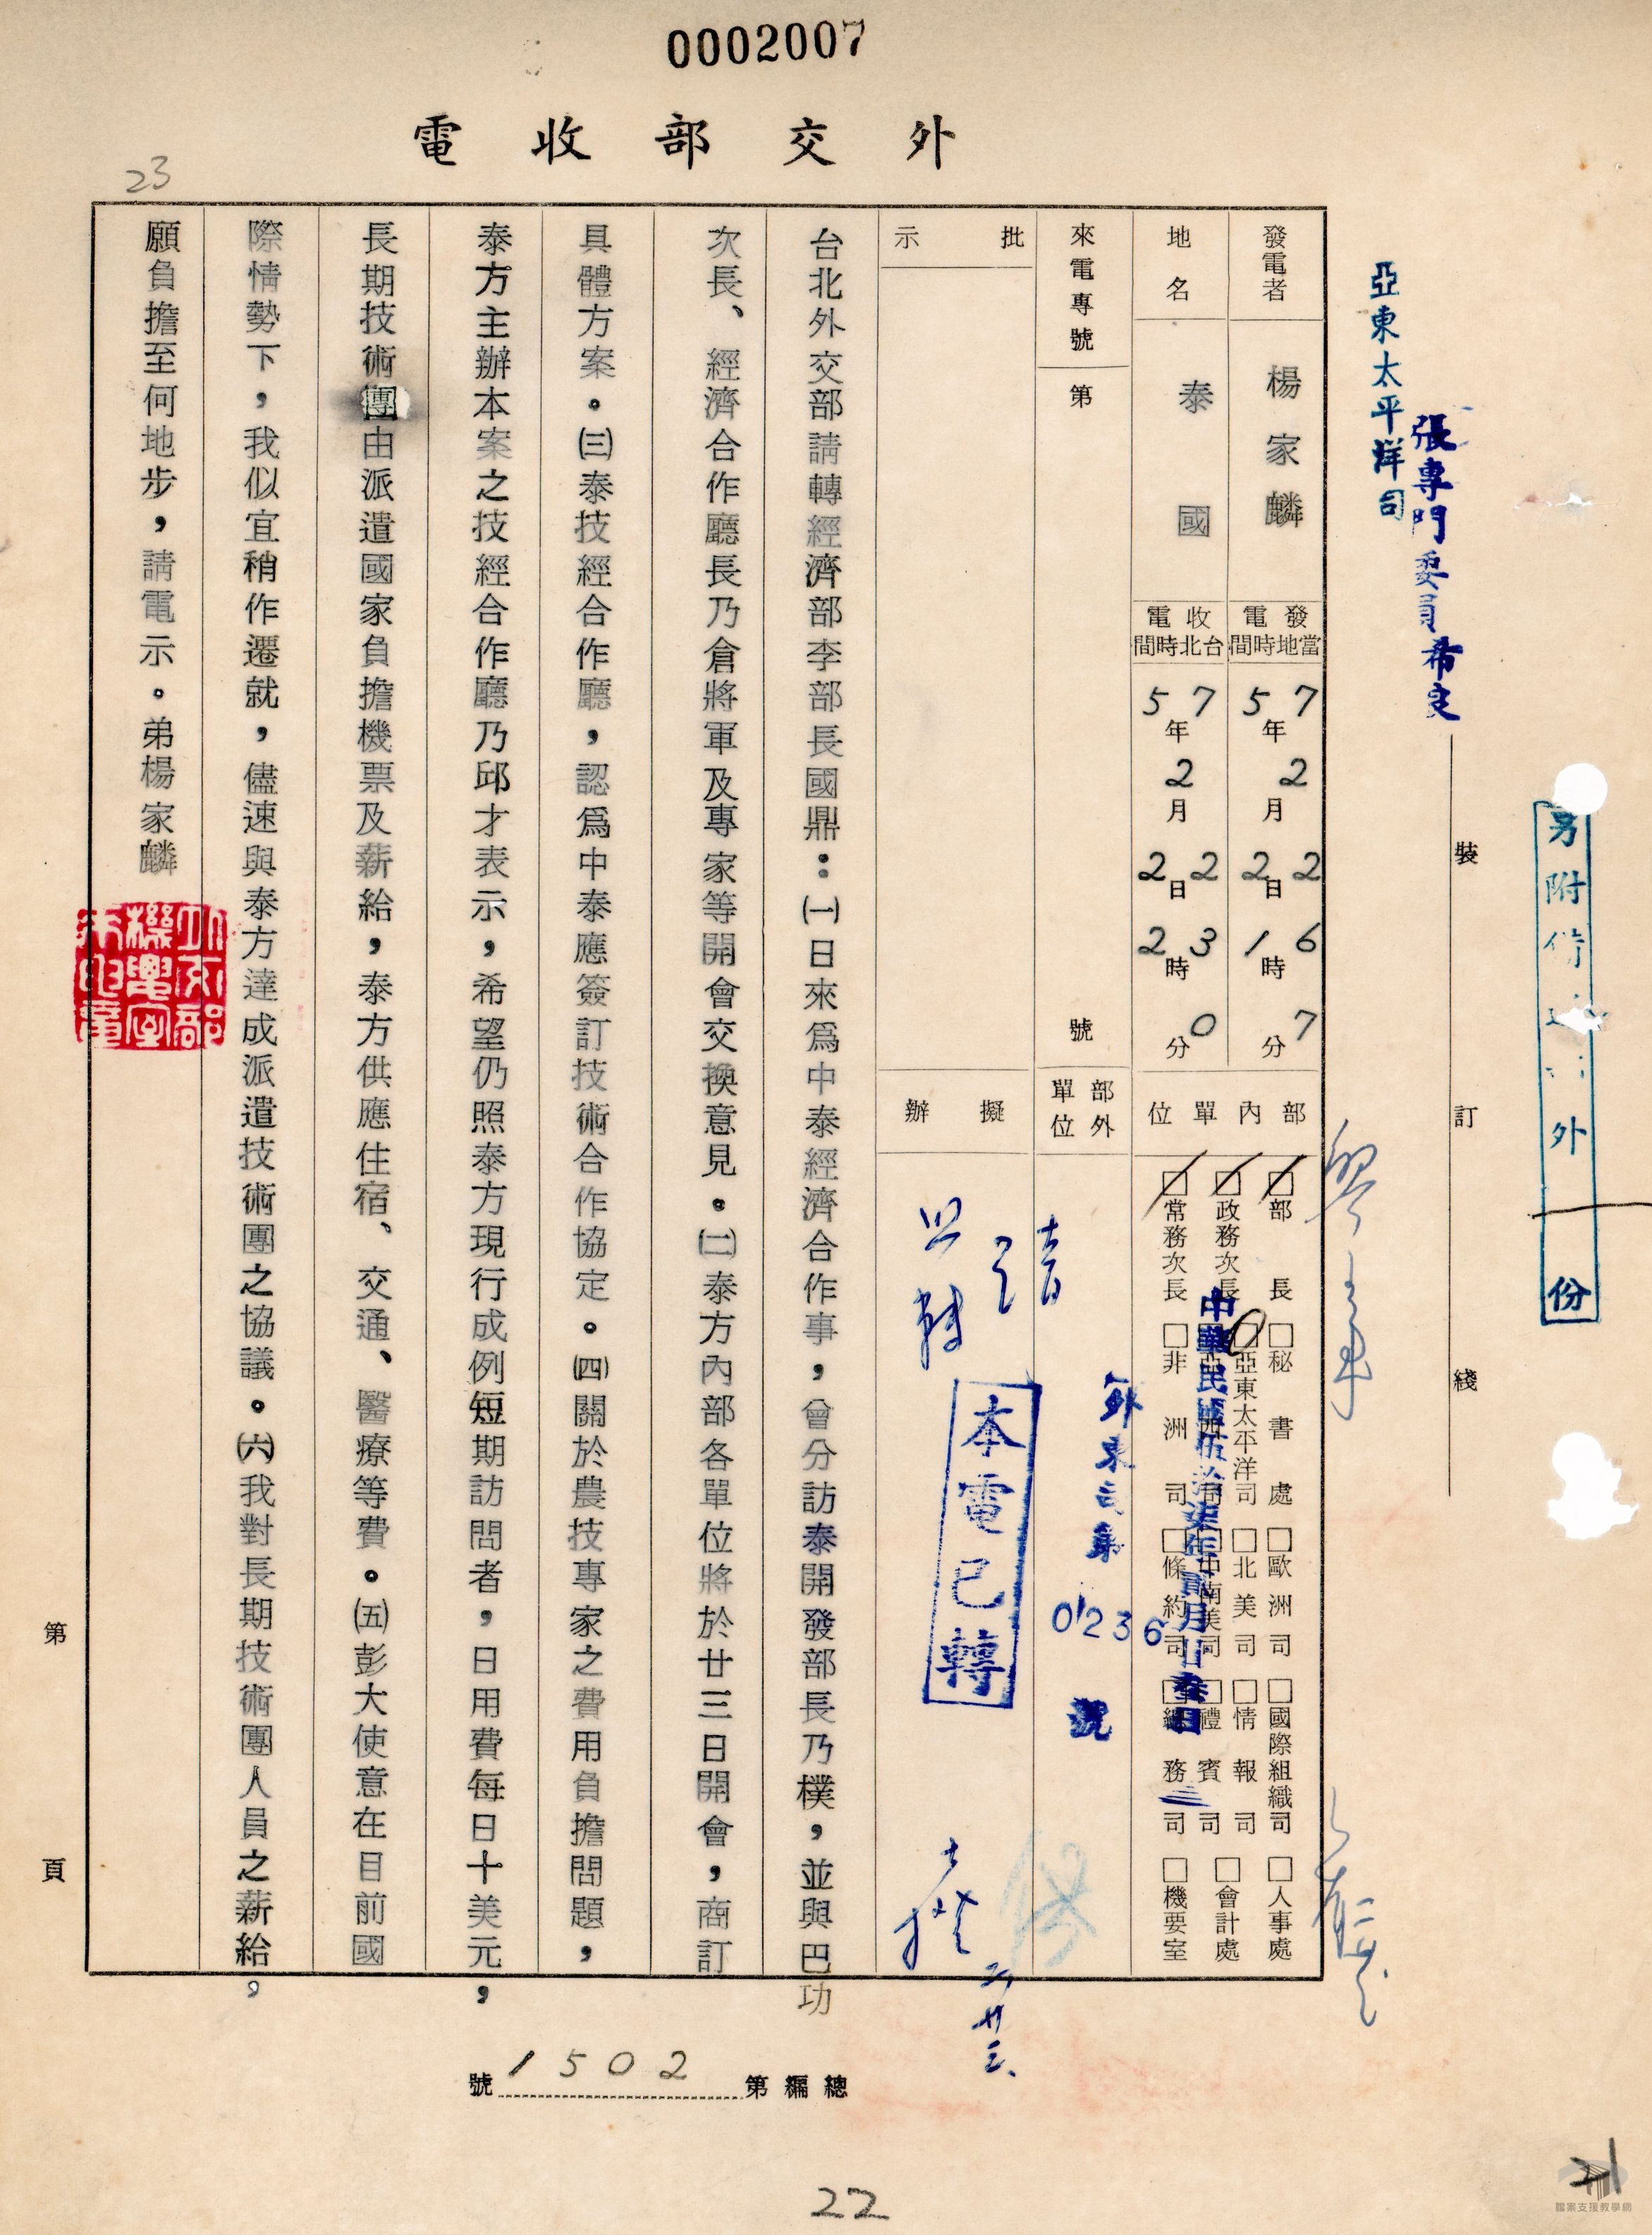 0002007
外交部收電
23
亞東太平洋司
張專門委員希文
裝
訂
綫
份
發電者
楊家麟
發電
當地時間
57年2月22日16時7分
地名
泰國
收電
台北時間
57年2月22日23時0分
來電專號
第
號
部內單位
部長
政務次長
常務次長
秘書處
亞東太平洋司
非洲司
歐洲司
北美司
中南美司
條約司
國際組織司
情報司
禮賓司
總務司
人事處
會計處
機要室
部外單位
中華民國伍拾柒年貳月廿叁日
外東司第
01236
號
批示
擬辦
本電已轉
二、廿三、
台北外交部請轉經濟部李部長國鼎：㈠日來爲中泰經濟合作事，曾分訪泰開發部長乃樸，並與巴功
次長、經濟合作廳長乃倉將軍及專家等開會交換意見。㈡泰方內部各單位將於廿三日開會，商訂
具體方案。㈢泰技經合作廳，認爲中泰應簽訂技術合作協定。㈣關於農技專家之費用負擔問題，
泰方主辦本案之技經合作廳乃邱才表示，希望仍照泰方現行成例短期訪問者，日用費每日十美元，
長期技術團由派遣國家負擔機票及薪給，泰方供應住宿、交通、醫療等費。㈤彭大使意在目前國
際情勢下，我似宜稍作遷就，儘速與泰方達成派遣技術團之協議。㈥我對長期技術團人員之薪給，
願負擔至何地步，請電示。弟楊家麟
第
頁
總編第1502號
22
21
檔案支援教學網